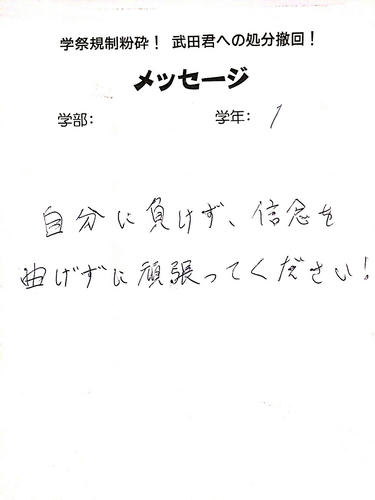 学祭規制粉砕！ 武田君への処分撤回！
メッセージ
学部： 学年： 1
自分に負けず、信念を
曲げずに頑張ってください！